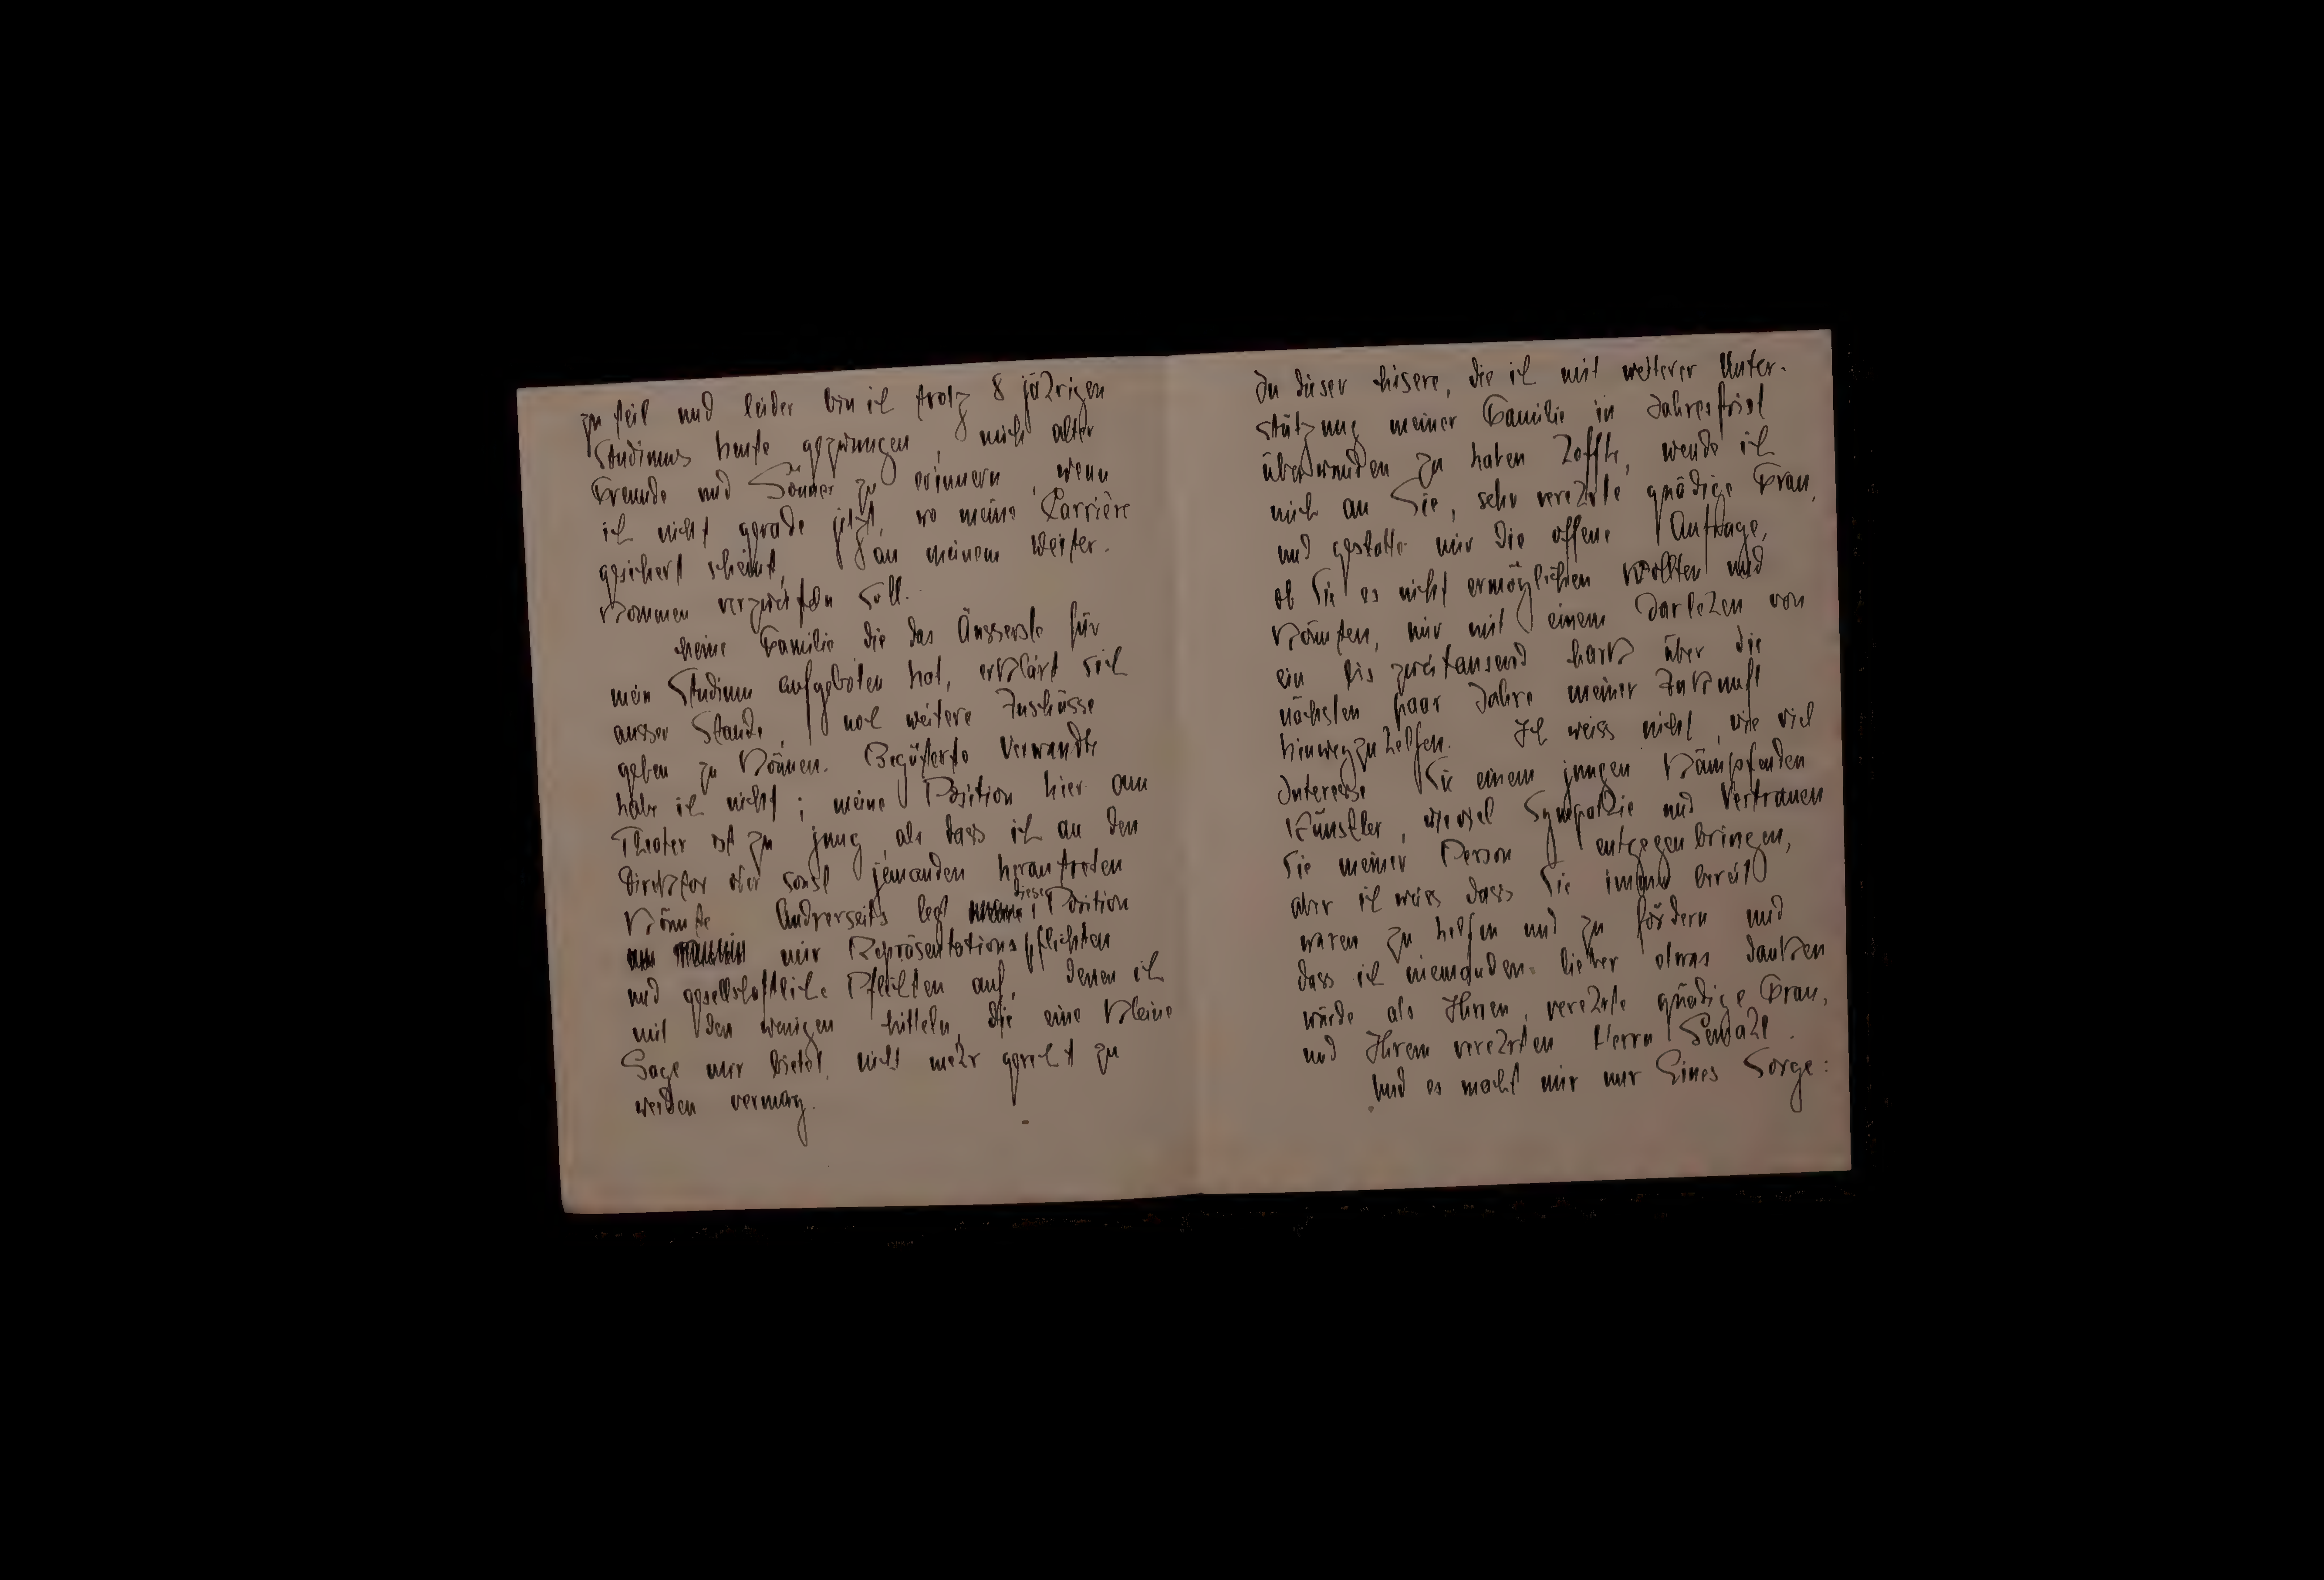 zu teil und leider bin ich trotz 8 jährigen
Studiums heute gezwungen, mich alter
Freunde und Gönner zu erinnern, wenn
ich nicht gerade jetzt, wo meine Carrière
gesichert scheint, an meinem Weiter-
kommen verzweifeln soll.
Meine Familie die das Äusserste für
mein Studium aufgeboten hat, erklärt sich
ausser Stande, noch weitere Zuschüsse
geben zu können. Begüterte Verwandte
habe ich nicht; meine Position hier am
Theater ist zu jung, als dass ich an den
Direktor oder sonst jemanden herantreten
könnte. Andrerseits legt diese Position
mir Repräsentationspflichten
und gesellschaftliche Pflichten auf, denen ich
mit den wenigen Mitteln, die eine kleine
Gage mir bietet, nicht mehr gerecht zu
werden vermag.
In dieser Misere, die ich mit weiterer Unter-
stützung meiner Familie in Jahresfrist
überwunden zu haben hoffte, wende ich
mich an Sie, sehr verehrte gnädige Frau,
und gestatte mir die offene Anfrage,
ob Sie es nicht ermöglichen wollten und
könnten, mir mit einem Darlehen von
ein bis zweitausend Mark über die
nächsten paar Jahre meiner Zukunft
hinwegzuhelfen. Ich weiss nicht, wie viel
Interesse Sie einem jungen kämpfenden
Künstler, wieviel Sympathie und Vertrauen
Sie meiner Person entgegenbringen,
aber ich weiss dass Sie immer bereit
waren zu helfen und zu fördern und
dass ich niemanden lieber etwas danken
würde als Ihnen, verehrte gnädige Frau,
und Ihrem verehrten Herrn Gemahl.
Und es macht mir nur Eines Sorge: